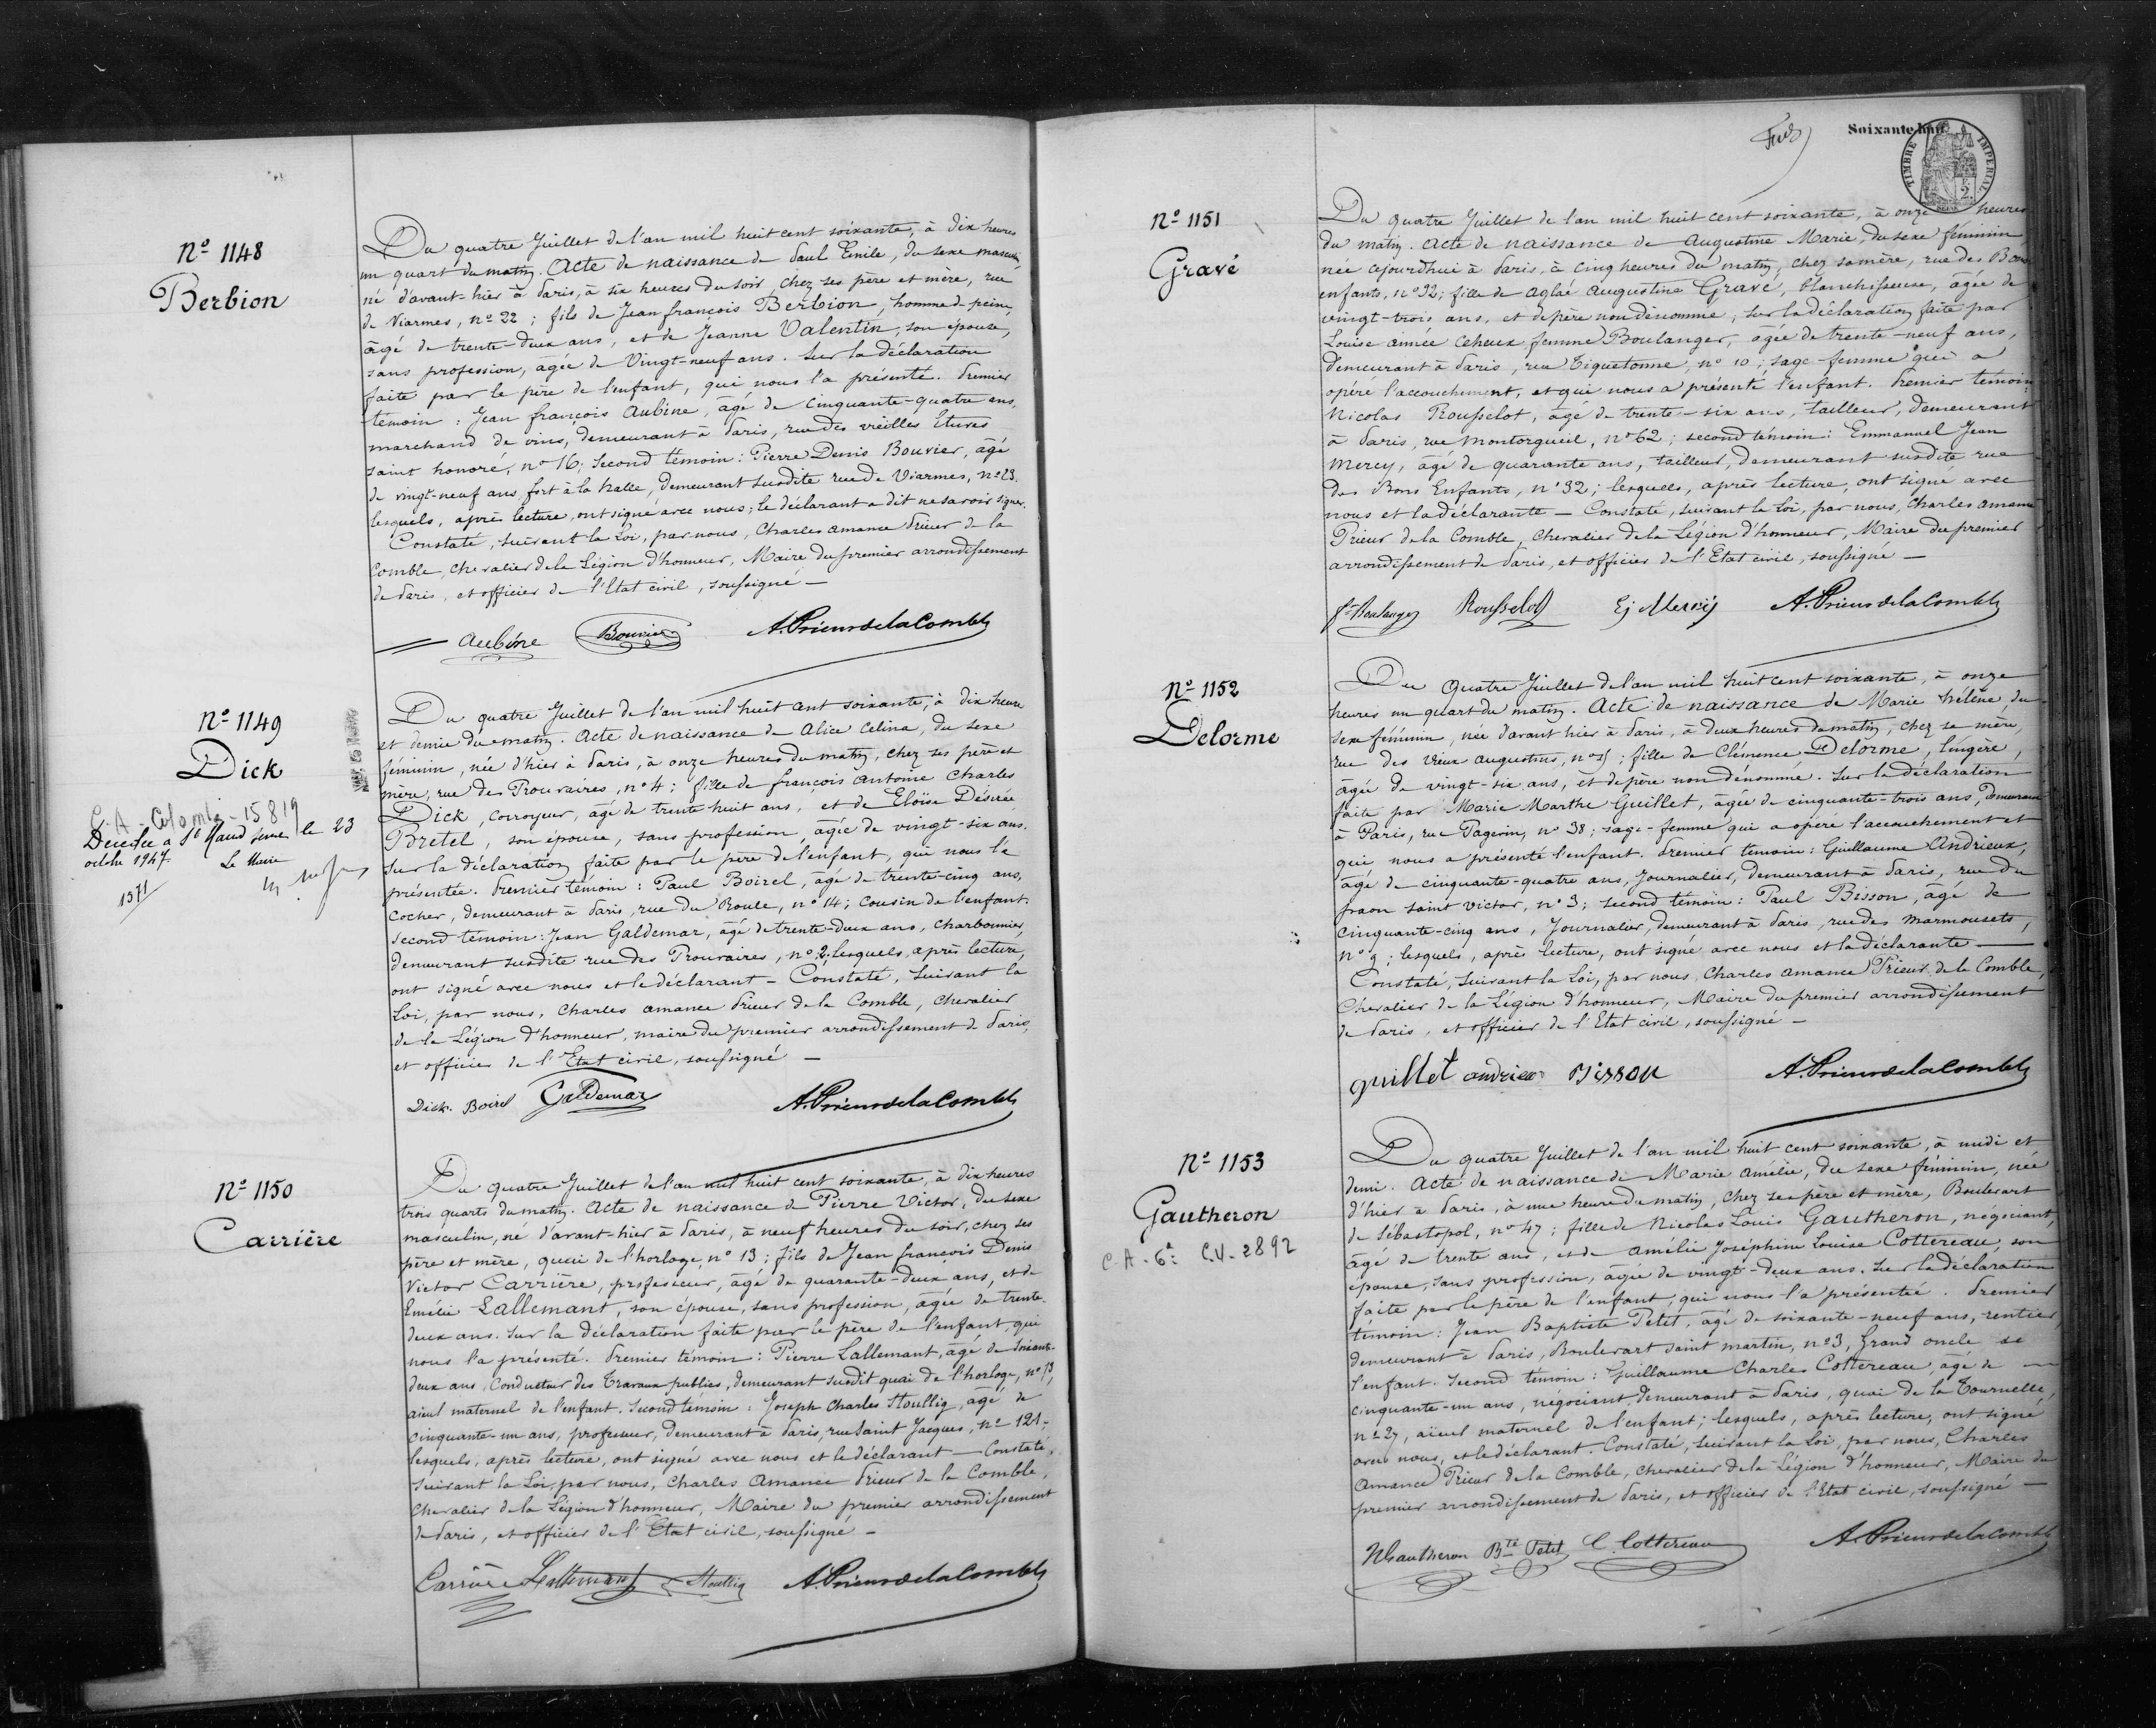 Nº 1148
Berbion
Du quatre Juillet de l'an mil huit cent soixante, à dix heures
un quart du matin. Acte de naissance de Paul Emile, du sexe masculin
né d'avant-hier à Paris, à six heures du soir, chez ses père et mère, rue
de Viarmes, nº 22 ; fils de Jean françois Berbion, homme de peine,
âgé de trente-deux ans, et de Jeanne Valentin, son épouse,
sans profession, âgée de Vingt-neuf ans. Sur la déclaration
faite par le père de l'enfant, qui nous l'a présenté. Premier
témoin : Jean françois Aubine, âgé de cinquante-quatre ans,
marchand de vins, demeurant à Paris, rue des vieilles Etuves
saint honoré, nº 16; Second témoin : Pierre Denis Bouvier, âgé
de vingt-neuf ans, fort à la halle, demeurant susdite rue de Viarmes, nº 23.
lesquels, après lecture, ont signé avec nous; le déclarant a dit ne savoir signer.
Constaté, suivant la Loi, par nous, Charles amance Prieur de la
Comble, chevalier de la Légion d'honneur, Maire du premier arrondissement
de Paris, et officier de l'Etat civil, soussigné —
Aubine Bouvier A. Prieur de la Comble
Nº 1149
Dick
C.A - Colombes - 15819
Décédée à St Mandé Seine le 23
octobre 1947
Le Maire
1371
Du quatre Juillet de l'an mil huit cent soixante, à dix heures
et demie du matin. Acte de naissance de Alice Celina, du sexe
féminin, née d'hier à Paris, à onze heures du matin, chez ses père et
mère, rue des Prouvaires, nº 4 ; fille de françois Antoine Charles
Dick, corroyeur, âgé de trente huit ans, et de Eloïse Désirée
Bretel, son épouse, sans profession, âgée de vingt-six ans.
Sur la déclaration faite par le père de l'enfant, qui nous l'a
présentée. Premier témoin : Paul Boirel, âgé de trente-cinq ans,
cocher, demeurant à Paris, rue du Roule, nº 14; cousin de l'enfant.
Second témoin : Jean Galdemar, âgé de trente-deux ans, charbonnier,
demeurant susdite rue des Prouvaires, nº 2; lesquels, après lecture,
ont signé avec nous et le déclarant - Constaté, suivant la
Loi, par nous, Charles amance Prieur de la Comble, chevalier
de la Légion d'honneur, maire du premier arrondissement de Paris,
et officier de l'Etat civil, soussigné —
Dick. Boirel Galdemar A. Prieur de la Comble
Nº 1150
Carrière
Du quatre Juillet de l'an mil huit cent soixante, à dix heures
trois quarts du matin. Acte de naissance de Pierre Victor, du sexe
masculin, né d'avant-hier à Paris, à neuf heures du soir, chez ses
père et mère, quai de l'horloge, nº 13 ; fils de Jean françois Denis
Victor Carrière, professeur, âgé de quarante-deux ans, et de
Emélie Lallemant, son épouse, sans profession, âgée de trente-
deux ans. Sur la déclaration faite par le père de l'enfant, qui
nous l'a présenté. Premier témoin : Pierre Lallemant, âgé de soixante-
deux ans, Conducteur des Travaux publics, demeurant susdit quai de l'horloge, nº 13,
aïeul maternel de l'enfant. Second témoin : Joseph Charles Stoullig, âgé de
cinquante-un ans, professeur, demeurant à Paris, rue Saint Jacques, nº 121 -
lesquels, après lecture, ont signé avec nous et le déclarant — Constaté,
suivant la Loi, par nous, Charles Amance Prieur de la Comble,
Chevalier de la Légion d'honneur, Maire du premier arrondissement
de Paris, et officier de l'Etat civil, soussigné -
Carrière Lallemant Stoullig A. Prieur de la Comble
Soixante-huit
TIMBRE IMPERIAL
Nº 1151
Gravé
Du quatre Juillet de l'an mil huit cent soixante, à onze heures
du matin. Acte de naissance de Augustine Marie, du sexe féminin
née cejourd'hui à Paris, à cinq heures du matin, chez sa mère, rue des Bons
enfants, nº 32; fille de Aglaé Augustine Gravé, blanchisseuse, âgée de
vingt-trois ans, et de père non dénommé, sur la déclaration faite par
Louise aimée Cheux, femme Boulanger, âgée de trente-neuf ans,
demeurant à Paris, rue Tiquetonne, nº 10; sage-femme qui a
opéré l'accouchement, et qui nous a présenté l'enfant. Premier témoin:
Nicolas Rousselot, âgé de trente-six ans, tailleur, demeurant
à Paris, rue Montorgueil, nº 62 ; second témoin : Emmanuel Jean
Mercy, âgé de quarante ans, tailleur, demeurant susdite rue
des Bons Enfants, nº 32; lesquels, après lecture, ont signé avec
nous et la déclarante — Constaté, suivant la Loi, par nous, Charles amance
Prieur de la Comble, Chevalier de la Légion d'honneur, Maire du premier
arrondissement de Paris, et officier de l'Etat civil, soussigné —
Fe Boulanger Rousselot Ej Mercy A. Prieur de la Comble
Nº 1152
Delorme
Du Quatre Juillet de l'an mil huit cent soixante, à onze
heures un quart du matin. Acte de naissance de Marie hélène, du
sexe féminin, née d'avant hier à Paris, à deux heures du matin, chez sa mère,
rue des Vieux Augustins, nº 51 ; fille de Clémence Delorme, lingère,
âgée de vingt-six ans, et de père non dénommé. Sur la déclaration
faite par Marie Marthe Guillet, âgée de cinquante-trois ans, Demeurant
à Paris, rue Pagevin, nº 38 ; sage-femme qui a opéré l'accouchement et
qui nous a présenté l'enfant. Premier témoin : Guillaume Andrieux,
âgé de cinquante-quatre ans, Journalier, demeurant à Paris, rue du
paon saint victor, nº 3; second témoin : Paul Bisson, âgé de
cinquante-cinq ans, Journalier, demeurant à Paris, rue des Marmousets,
nº 9 ; lesquels, après lecture, ont signé avec nous et la déclarante —
Constaté, suivant la Loi, par nous, Charles amance Prieur de la Comble,
Chevalier de la Légion d'honneur, Maire du premier arrondissement
de Paris, et officier de l'Etat civil, soussigné —
guillet andrieux Bisson A. Prieur de la Comble
Nº 1153
Gautheron
C.A - 6e C.V. 2892
Du quatre Juillet de l'an mil huit cent soixante, à midi et
demi. Acte de naissance de Marie Amélie, du sexe féminin, née
d'hier à Paris, à une heure du matin, chez ses père et mère, Boulevart
de Sébastopol, nº 47 ; fille de Nicolas Louis Gautheron, négociant,
âgé de trente ans, et de Amélie Joséphine Louise Cottereau, son
épouse, sans profession, âgée de vingt-deux ans. Sur la déclaration
faite par le père de l'enfant, qui nous l'a présentée. Premier
témoin : Jean Baptiste Petit, âgé de soixante-neuf ans, rentier,
demeurant à Paris, Boulevart saint martin, nº 3, Grand oncle de
l'enfant. Second témoin : Guillaume Charles Cottereau, âgé de —
cinquante-un ans, négociant, demeurant à Paris, quai de la Tournelle,
nº 27, aïeul maternel de l'enfant ; lesquels, après lecture, ont signé
avec nous, et le déclarant. Constaté, suivant la Loi, par nous, Charles
Amance Prieur de la Comble, chevalier de la Légion d'honneur, Maire du
premier arrondissement de Paris, et officier de l'Etat civil, soussigné —
N Gautheron Bte Petit C. Cottereau A. Prieur de la Comble